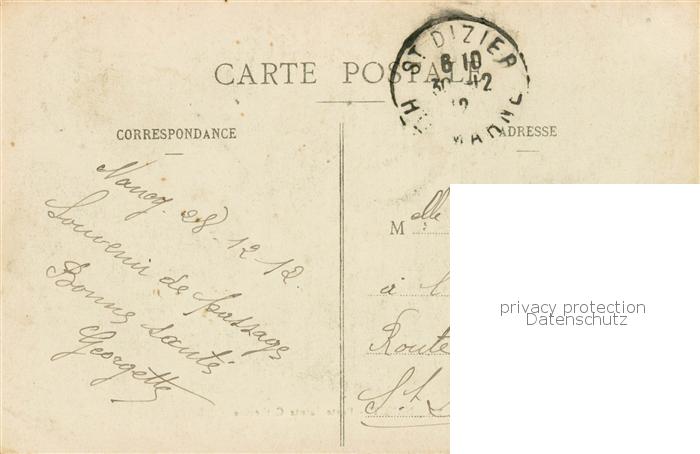 CARTE POSTALE
ST DIZIER
6 10
30 -12
12
HTE MARNE
CORRESPONDANCE
ADRESSE
Nancy 28-12-12.
Souvenir de passage
Bonne santé
Georgette
Melle
à l
Route
St
privacy protection
Datenschutz